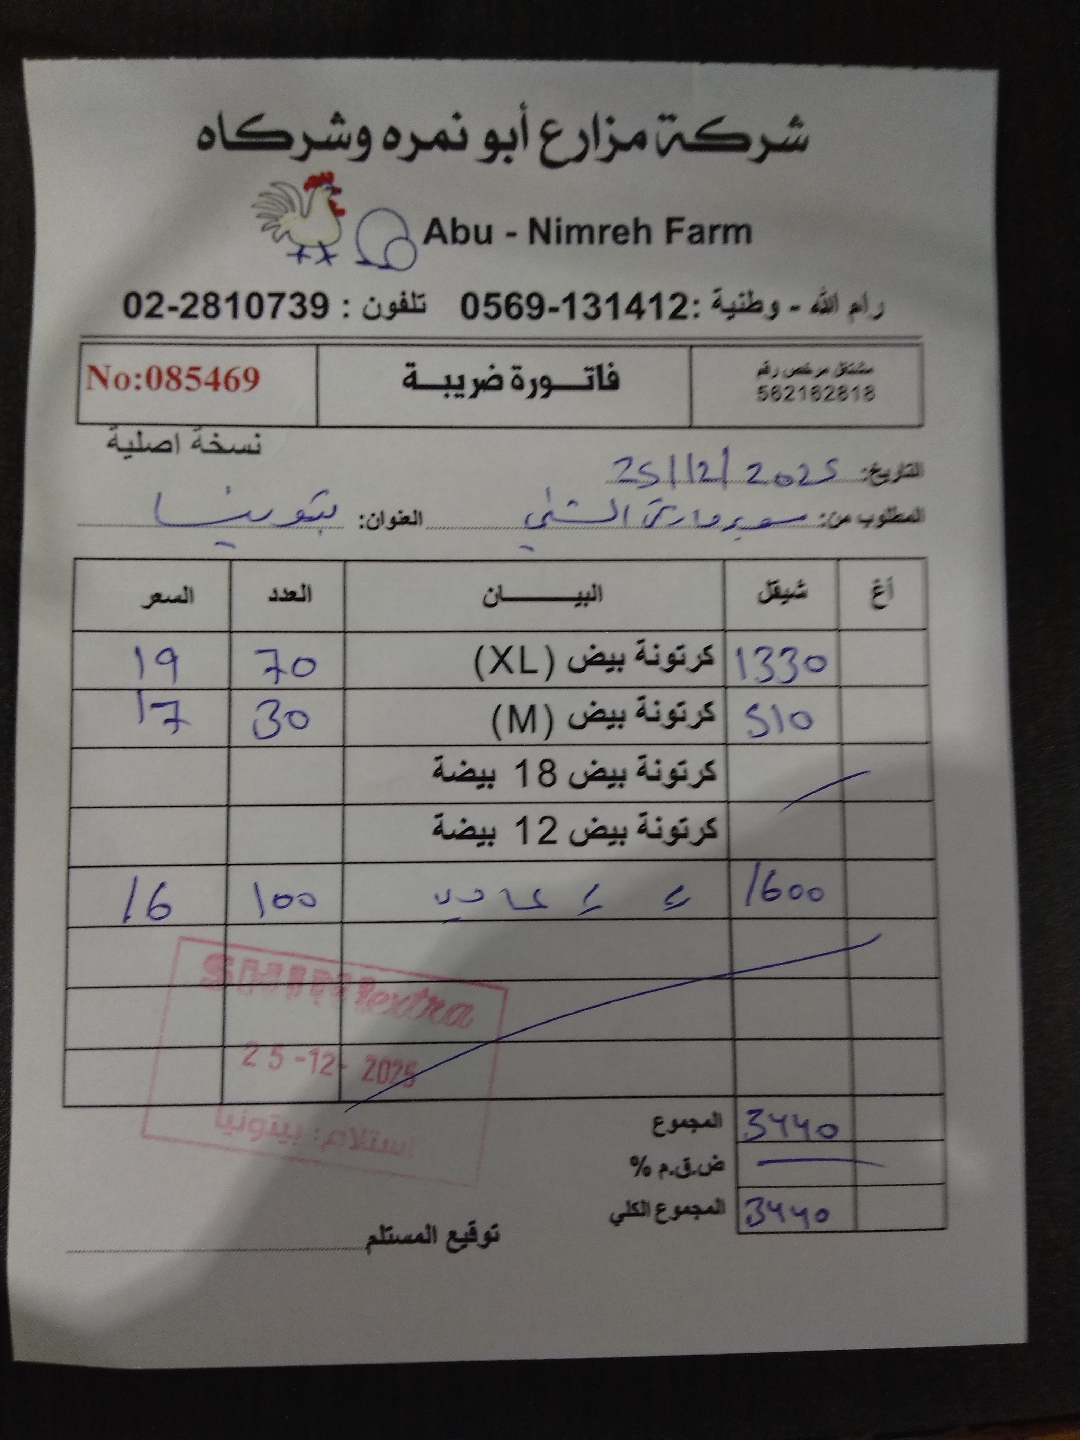 شركة مزارع أبو نمره وشركاه
Abu - Nimreh Farm
رام الله - وطنية :0569-131412 تلفون : 02-2810739
مشتغل مرخص رقم
562162818
فاتـــورة ضريبـــة
No:085469
نسخة اصلية
التاريخ: 25/12/2025
المطلوب من: سوبر ماركت الشني العنوان: بتونيا
أغ شيقل البيــــــــان العدد السعر
1330 كرتونة بيض (XL) 70 19
510 كرتونة بيض (M) 30 17
كرتونة بيض 18 بيضة
كرتونة بيض 12 بيضة
1600 ء ء 100 16
SHINI extra
25-12-2025
استلام: بيتونيا
المجموع 3440
ض.ق.م %
المجموع الكلي 3440
توقيع المستلم